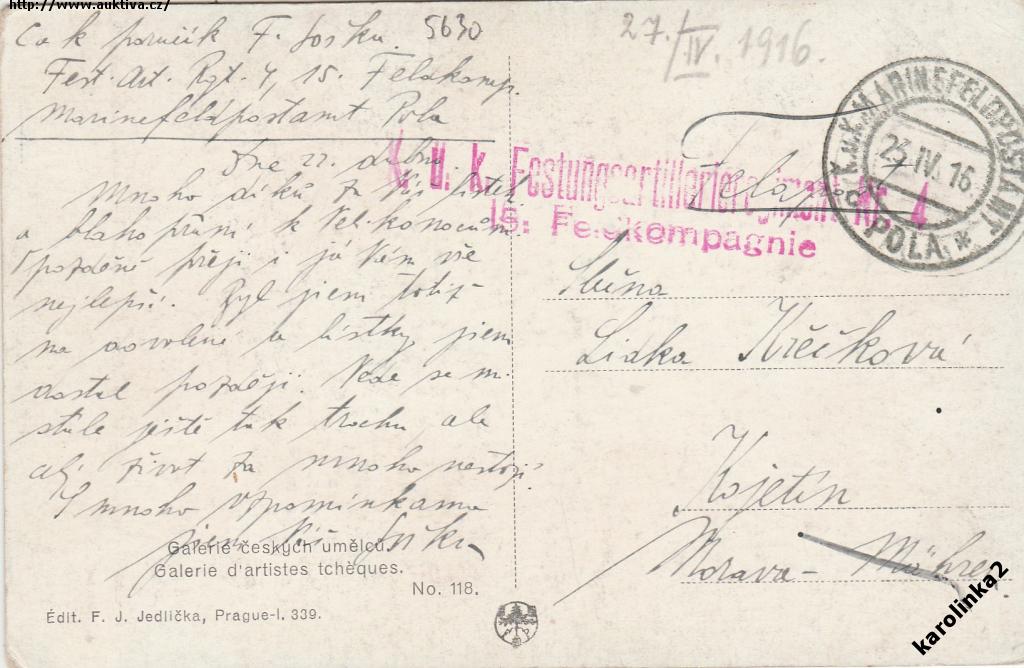 http://www.auktiva.cz/
C a k poručík F. Soška. 5630
27./IV. 1916.
Fest. Art. Rgt. 4, 15. Feldkomp.
Marinefeldpostamt Pola
K.u.K. MARINEFELDPOSTAMT
24.IV.16
POLA *
K. u. K. Festungsartillerieregiment Nr. 4
15. Feldkompagnie
Dne 22. dubna
Mnoho díků za Váš lístek
a blahopřání k Velikonocům.
pozděně přeji i já Vám vše
nejlepší. Byl jsem totiž
na dovolené a lístky jsem
dostal později. Vede se mi
stále ještě tak trochu, ale
celý život za mnoho nestojí.
S mnoha vzpomínkama
jsem Váš Soška
Slečna
Lidka Křečková
Kojetín
Morava - Mähren
Galerie českých umělců.
Galerie d'artistes tchèques.
No. 118.
Édit. F. J. Jedlička, Prague-I. 339.
karolinka2